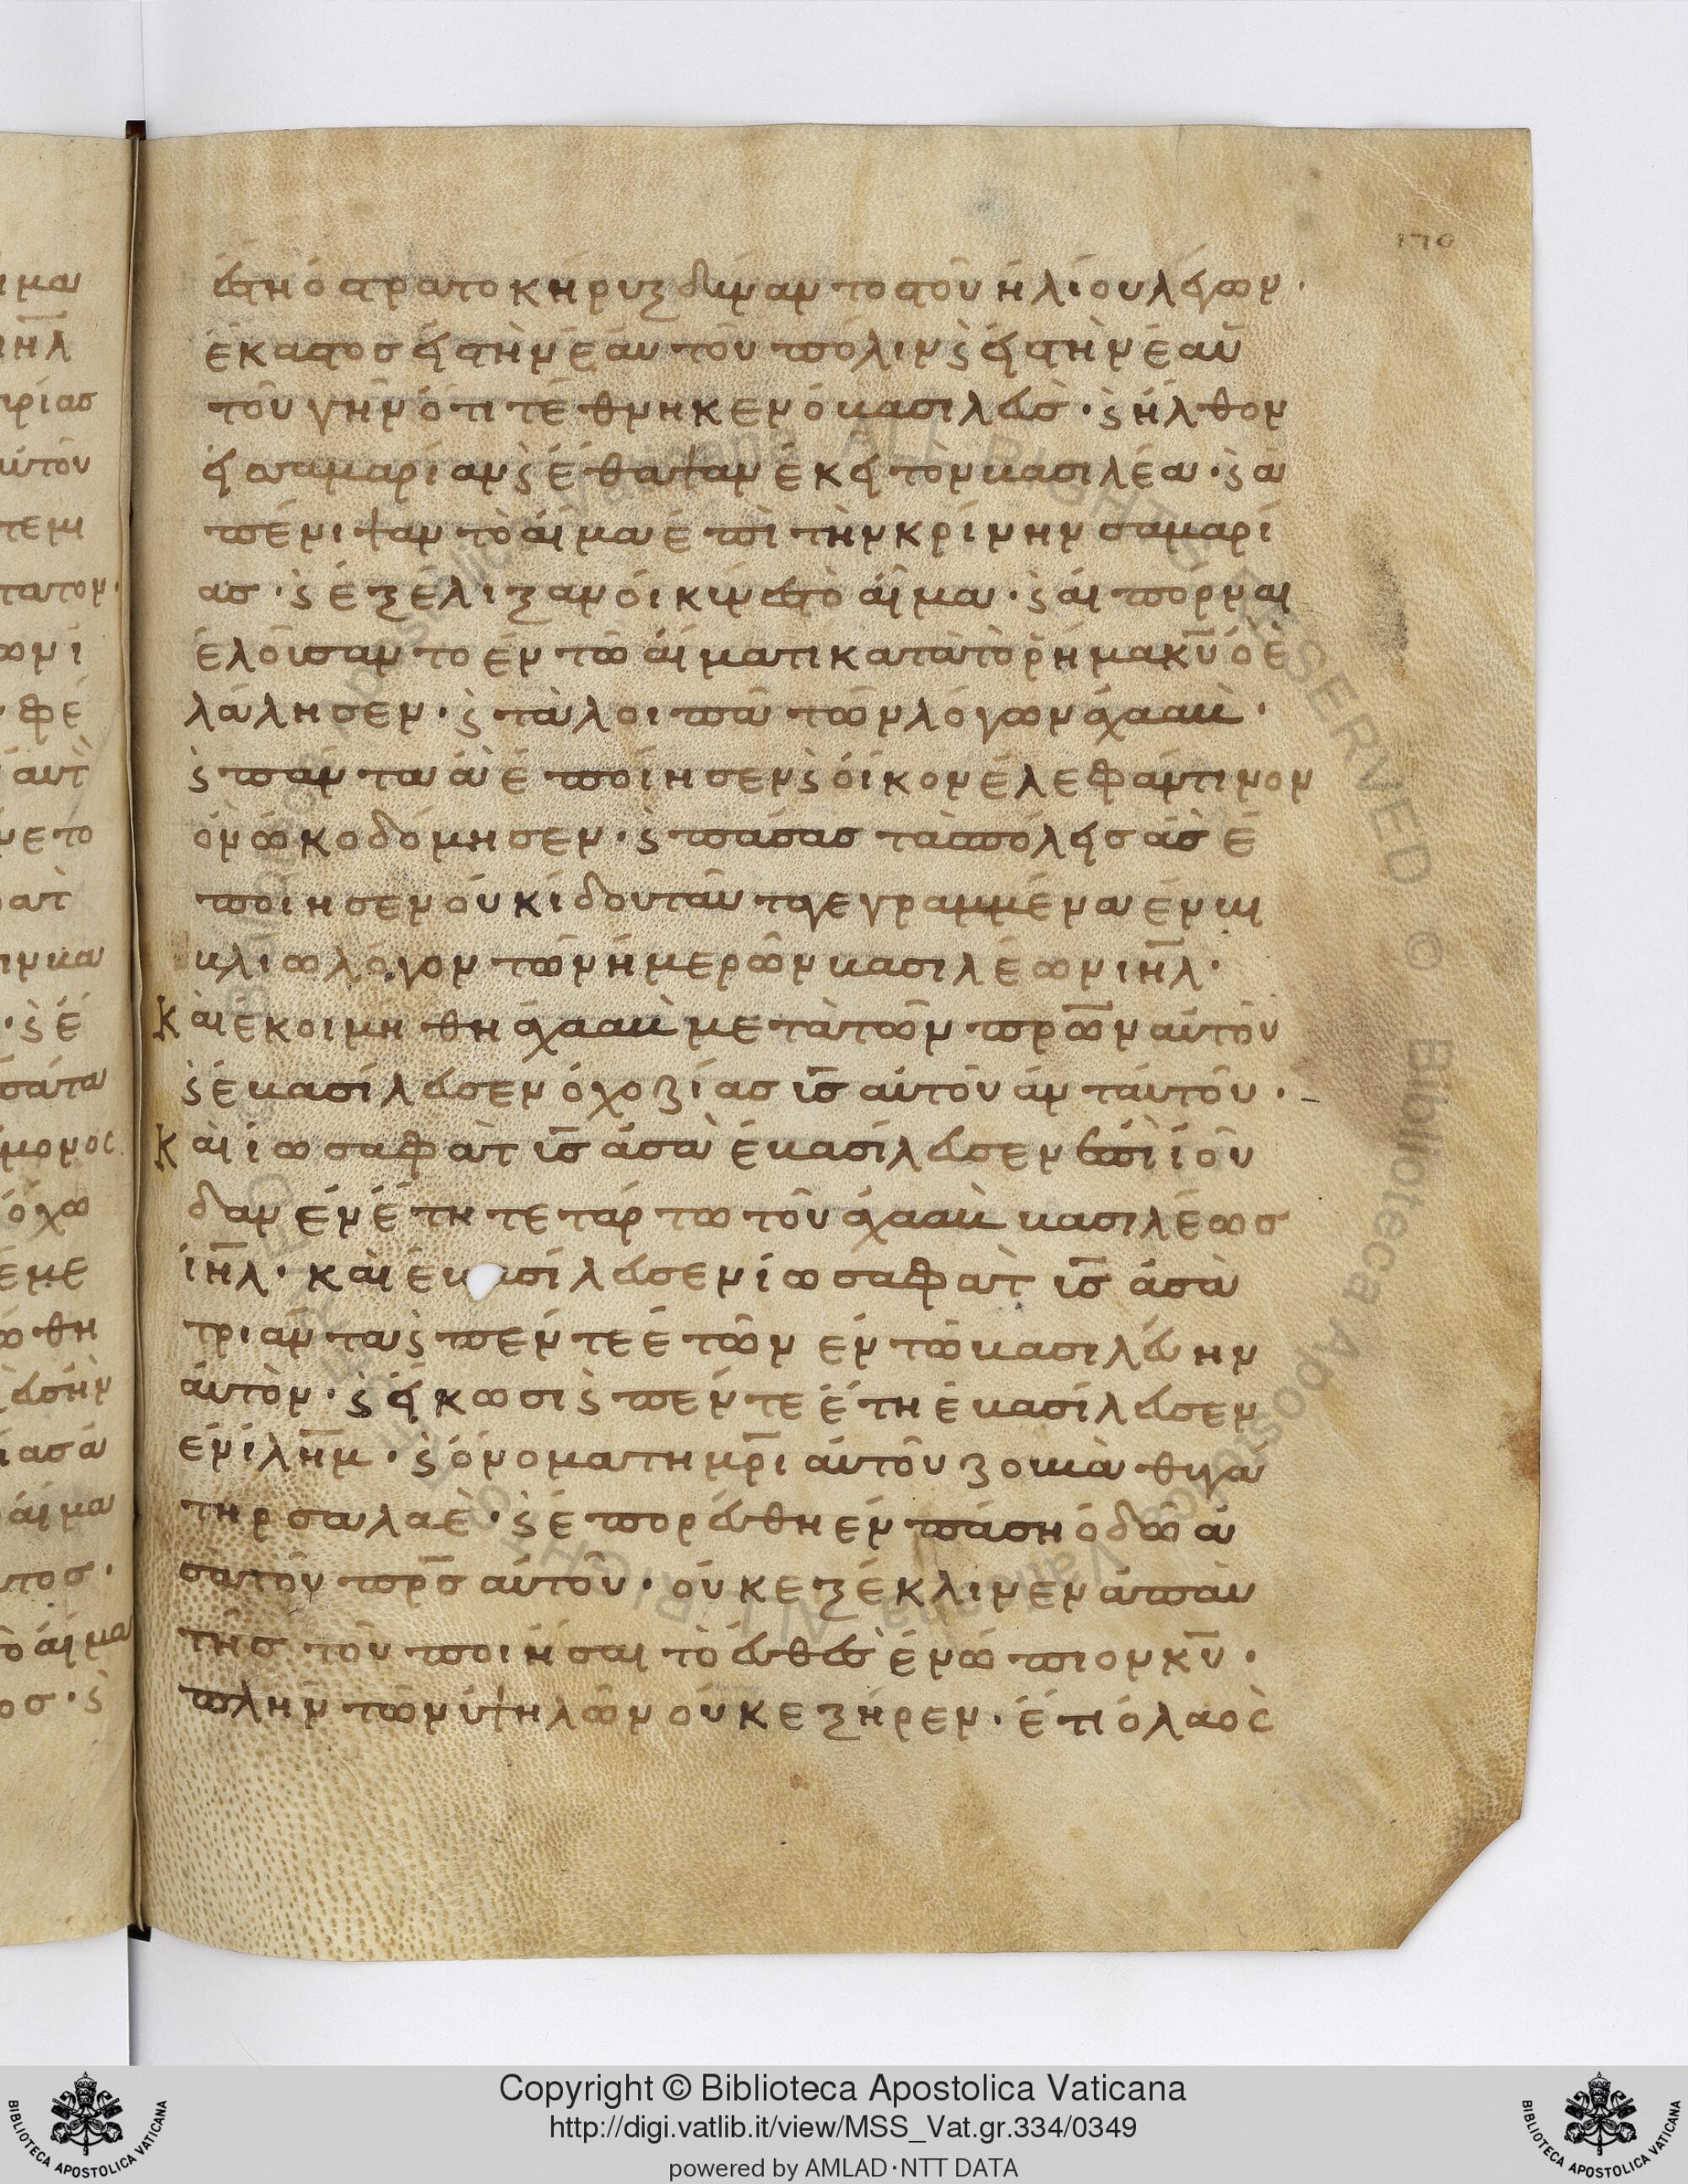 170
ἔστη ὁ στρατοκήρυξ δύναντος τοῦ ἡλίου λέγων·
ἕκαστος εἰς τὴν ἑαυτοῦ πόλιν ϛ εἰς τὴν ἑαυ
τοῦ γῆν ὅτι τέθνηκεν ὁ βασιλεύς· ϛ ἦλθον
εἰς σαμαρίαν ϛ ἔθαψαν ἐκεῖ τὸν βασιλέα· ϛ ἀ
πένιψαν τὸ αἷμα ἐπὶ τὴν κρίνην σαμαρί
ας· ϛ ἐξέλιξαν οἱ κύνες τὸ αἷμα· ϛ αἱ πόρναι
ἐλοῦσαντο ἐν τῶ αἵματι κατὰ τὸ ῥῆμα κ̅υ̅ ὃ ἐ
λάλησεν· ϛ τὰ λοιπὰ τῶν λόγων ἀχαὰβ·
ϛ πάντα ἃ ἐποίησεν ϛ οἶκον ἐλεφάντινον
ὃν ὠκοδόμησεν· ϛ πάσας τὰς πόλεις ἃς ἐ
ποίησεν οὐκ ἰδοὺ ταῦτα γεγραμμένα ἐν βι
βλίω λόγον τῶν ἡμερῶν βασιλέων ι̅η̅λ̅·
Καὶ ἐκοιμήθη ἀχαὰβ μετὰ τῶν π̅ρ̅ω̅ν αὐτοῦ
ϛ ἐβασίλευσεν ὀχοζίας υ̅ς̅ αὐτοῦ ἀντ' αὐτοῦ·
Καὶ ἰωσαφὰτ υ̅ς̅ ἀσὰ ἐβασίλευσεν ἐπὶ ἰού
δαν ἐν ἔτη τετάρτω τοῦ ἀχαὰβ βασιλέως
ι̅η̅λ̅· καὶ ἐβασίλευσεν ἰωσαφὰτ υ̅ς̅ ἀσὰ
τριάντα ϛ πέντε ἐτῶν ἐν τῶ βασιλεύην
αὐτὸν· ϛ εἴκωσι ϛ πέντε ἔτη ἐβασίλευσεν
ἐν ι̅λ̅η̅μ̅· ϛ ὄνομα τῆ μ̅ρ̅ι̅ αὐτοῦ ζουβὰ θυγά
τηρ σαλαὲ· ϛ ἐπορεύθη ἐν πάση ὁδῶ ἀ
σὰ τοῦ π̅ρ̅ς̅ αὐτοῦ· οὐκ ἐξέκλινεν ἀπ' αὐ
τῆς τοῦ ποιῆσαι τὸ εὐθὲς ἐνώπιον κ̅υ̅·
πλὴν τῶν ὑψηλῶν οὐκ ἐξῆρεν· ἔτι ὁ λαὸς
Copyright © Biblioteca Apostolica Vaticana
http://digi.vatlib.it/view/MSS_Vat.gr.334/0349
powered by AMLAD·NTT DATA
BIBLIOTECA APOSTOLICA VATICANA
BIBLIOTECA APOSTOLICA VATICANA